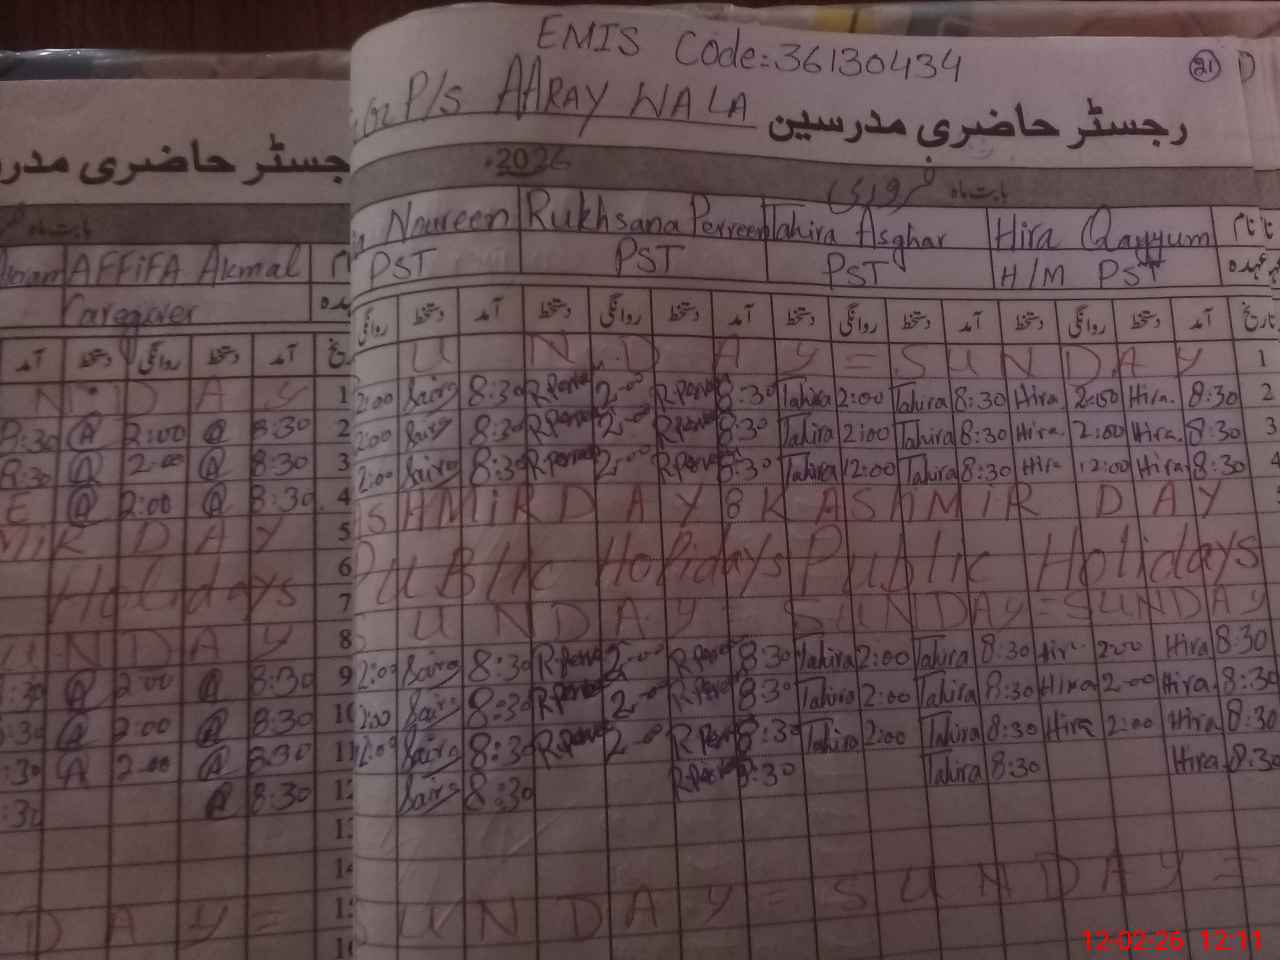 EMIS Code:36130434
21
P/S AARAY WALA
رجسٹر حاضری مدرسین
2026
بابت ماہ فروری
Noureen Rukhsana Perveen Tahira Asghar Hira Qayyum نام
PST PST PST H/M PST عہدہ
دستخط آمد دستخط روانگی دستخط آمد دستخط روانگی دستخط آمد دستخط روانگی دستخط آمد تاریخ
U N D A Y = S U N D A Y 1
2:00 Saira 8:30 R.Perveen 2:00 R.Perveen 8:30 Tahira 2:00 Tahira 8:30 Hira 2:00 Hira 8:30 2
2:00 Saira 8:30 R.Perveen 2:00 R.Perveen 8:30 Tahira 2:00 Tahira 8:30 Hira 2:00 Hira 8:30 3
2:00 Saira 8:30 R.Perveen 2:00 R.Perveen 8:30 Tahira 2:00 Tahira 8:30 Hira 2:00 Hira 8:30 4
SHMIR DAY KASHMIR DAY
PUBLIC Holidays Public Holidays
UNDAY = SUNDAY = SUNDAY
2:00 Saira 8:30 R.Perveen 2:00 R.Perveen 8:30 Tahira 2:00 Tahira 8:30 Hira 2:00 Hira 8:30
2:00 Saira 8:30 R.Perveen 2:00 R.Perveen 8:30 Tahira 2:00 Tahira 8:30 Hira 2:00 Hira 8:30
2:00 Saira 8:30 R.Perveen 2:00 R.Perveen 8:30 Tahira 2:00 Tahira 8:30 Hira 2:00 Hira 8:30
Saira 8:30 R.Perveen 8:30 Tahira 8:30 Hira 8:30
U N D A Y = S U N D A Y =
جسٹر حاضری مدر
بابت ماہ
AFFIFA Akmal
Caregiver
آمد دستخط روانگی دستخط آمد
N D A Y 1
8:30 A 2:00 A 8:30 2
8:30 A 2:00 A 8:30 3
E A 2:00 A 8:30 4
MIR DAY 5
Holidays 6
7
U N D A Y 8
:30 A 2:00 A 8:30 9
:30 A 2:00 A 8:30 10
:30 A 2:00 A 8:30 11
:30 A 8:30 12
13
14
D A Y = 15
12-02-26 12:11